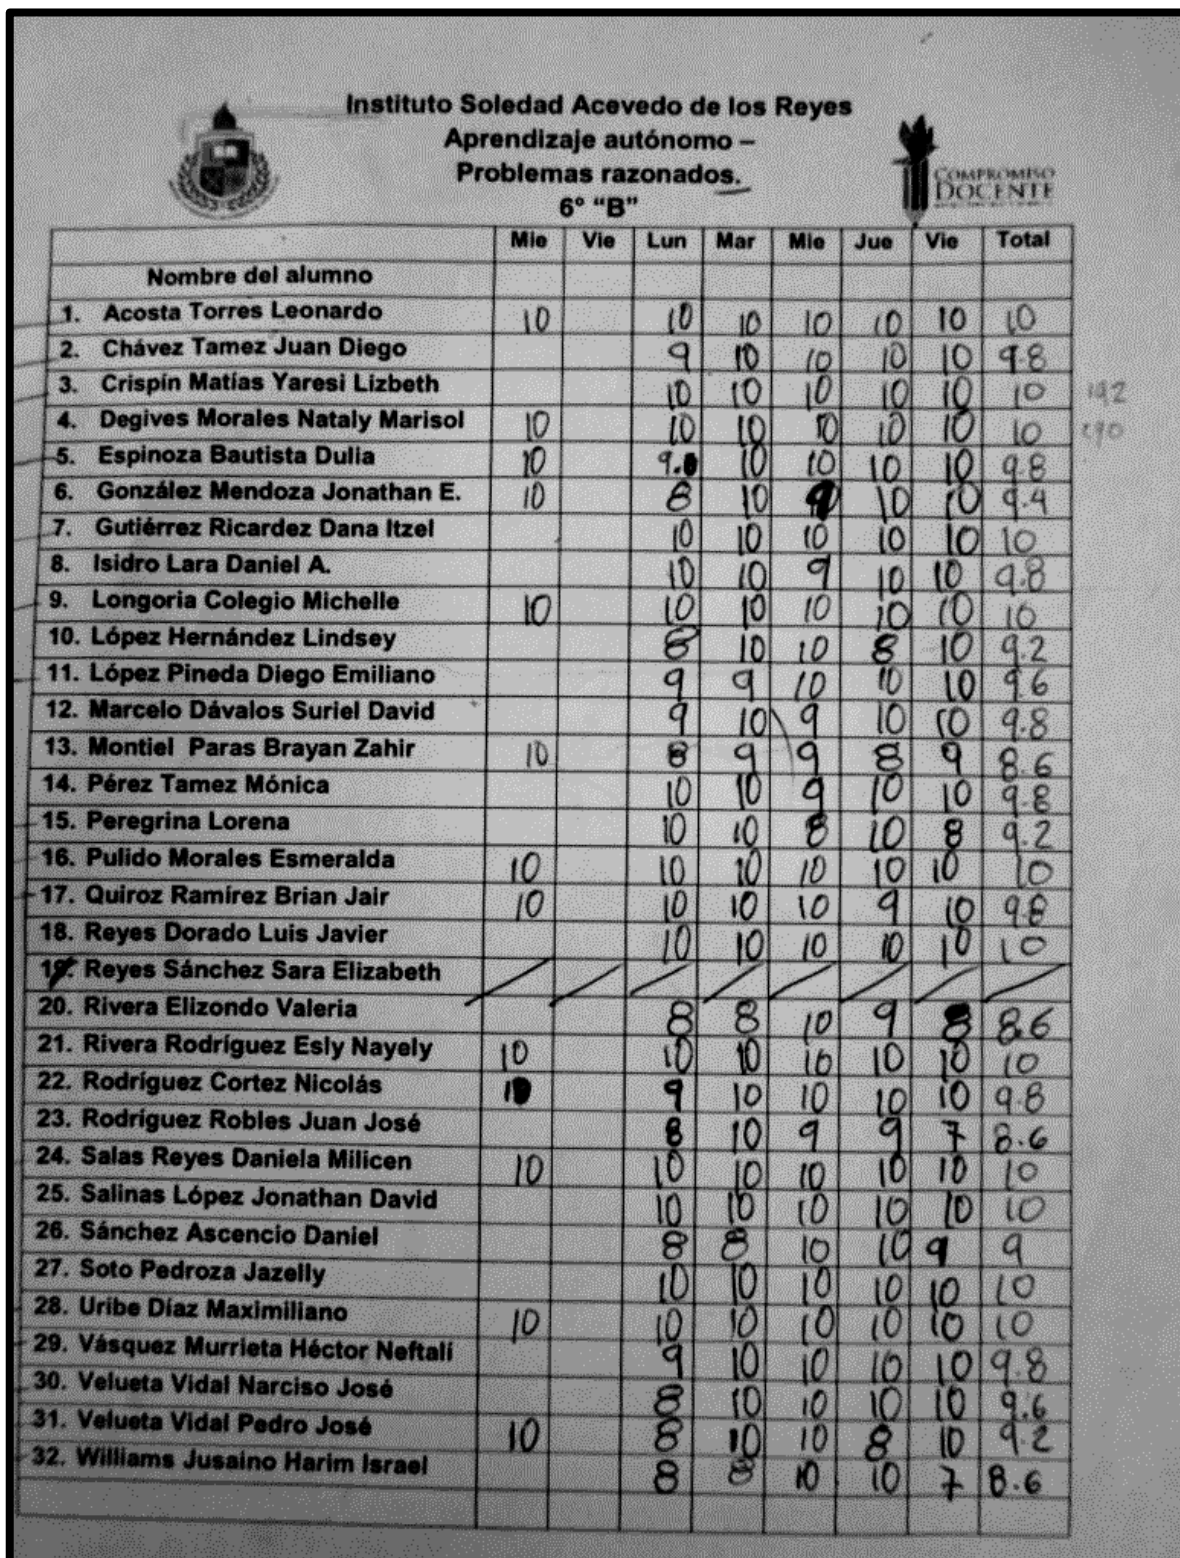 Instituto Soledad Acevedo de los Reyes
Aprendizaje autónomo –
Problemas razonados.
6° "B"
COMPROMISO
DOCENTE
Mie Vie Lun Mar Mie Jue Vie Total
Nombre del alumno
1. Acosta Torres Leonardo 10 10 10 10 10 10 10
2. Chávez Tamez Juan Diego 9 10 10 10 10 9.8
3. Crispín Matías Yaresi Lizbeth 10 10 10 10 10 10 192
4. Degives Morales Nataly Marisol 10 10 10 10 10 10 10
5. Espinoza Bautista Dulia 10 9. 10 10 10 10 9.8
6. González Mendoza Jonathan E. 10 8 10 9 10 10 9.4
7. Gutiérrez Ricardez Dana Itzel 10 10 10 10 10 10
8. Isidro Lara Daniel A. 10 10 9 10 10 9.8
9. Longoria Colegio Michelle 10 10 10 10 10 10 10
10. López Hernández Lindsey 8 10 10 8 10 9.2
11. López Pineda Diego Emiliano 9 9 10 10 10 9.6
12. Marcelo Dávalos Suriel David 9 10 9 10 10 9.8
13. Montiel Paras Brayan Zahir 10 8 9 9 8 9 8.6
14. Pérez Tamez Mónica 10 10 9 10 10 9.8
15. Peregrina Lorena 10 10 8 10 8 9.2
16. Pulido Morales Esmeralda 10 10 10 10 10 10 10
17. Quiroz Ramírez Brian Jair 10 10 10 10 9 10 9.8
18. Reyes Dorado Luis Javier 10 10 10 10 10 10
19. Reyes Sánchez Sara Elizabeth
20. Rivera Elizondo Valeria 8 8 10 9 8 8.6
21. Rivera Rodríguez Esly Nayely 10 10 10 10 10 10 10
22. Rodríguez Cortez Nicolás 10 9 10 10 10 10 9.8
23. Rodríguez Robles Juan José 8 10 9 9 7 8.6
24. Salas Reyes Daniela Milicen 10 10 10 10 10 10 10
25. Salinas López Jonathan David 10 10 10 10 10 10
26. Sánchez Ascencio Daniel 8 8 10 10 9 9
27. Soto Pedroza Jazelly 10 10 10 10 10 10
28. Uribe Díaz Maximiliano 10 10 10 10 10 10 10
29. Vásquez Murrieta Héctor Neftalí 9 10 10 10 10 9.8
30. Velueta Vidal Narciso José 8 10 10 10 10 9.6
31. Velueta Vidal Pedro José 10 8 10 10 8 10 9.2
32. Williams Jusaino Harim Israel 8 8 10 10 7 8.6